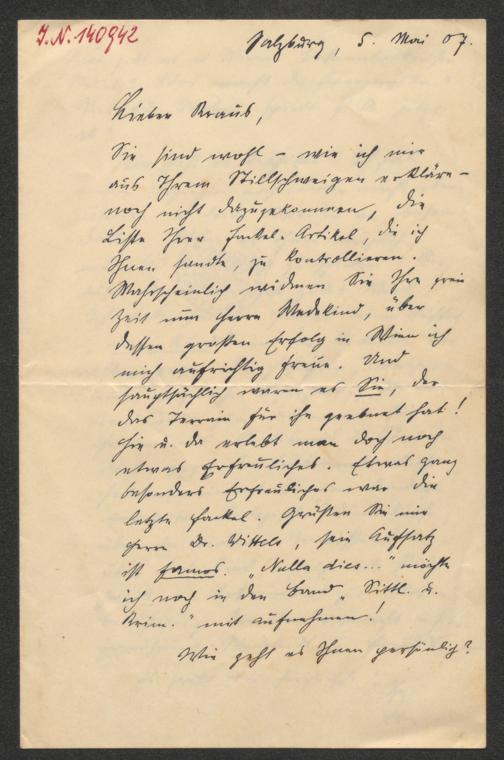 J.N. 140942
Salzburg, 5. Mai 07.
Lieber Kraus,
Sie sind wohl – wie ich mir
aus Ihrem Stillschweigen erkläre –
noch nicht dazugekommen, die
Liste Ihrer Fackel-Artikel, die ich
Ihnen sandte, zu kontrollieren.
Wahrscheinlich widmen Sie Ihre freie
Zeit nun Herrn Wedekind, über
dessen großen Erfolg in Wien ich
mich aufrichtig freue. Und
hauptsächlich waren es Sie, der
das Terrain für ihn geebnet hat!
Hie u. da erlebt man doch noch
etwas Erfreuliches. Etwas ganz
besonders Erfreuliches war die
letzte Fackel. Grüßen Sie mir
Herrn Dr. Wittels, sein Aufsatz
ist famos. „Nulla dies..." möchte
ich noch in den Band „Sittl. u.
Krim." mit aufnehmen!
Wie geht es Ihnen persönlich?